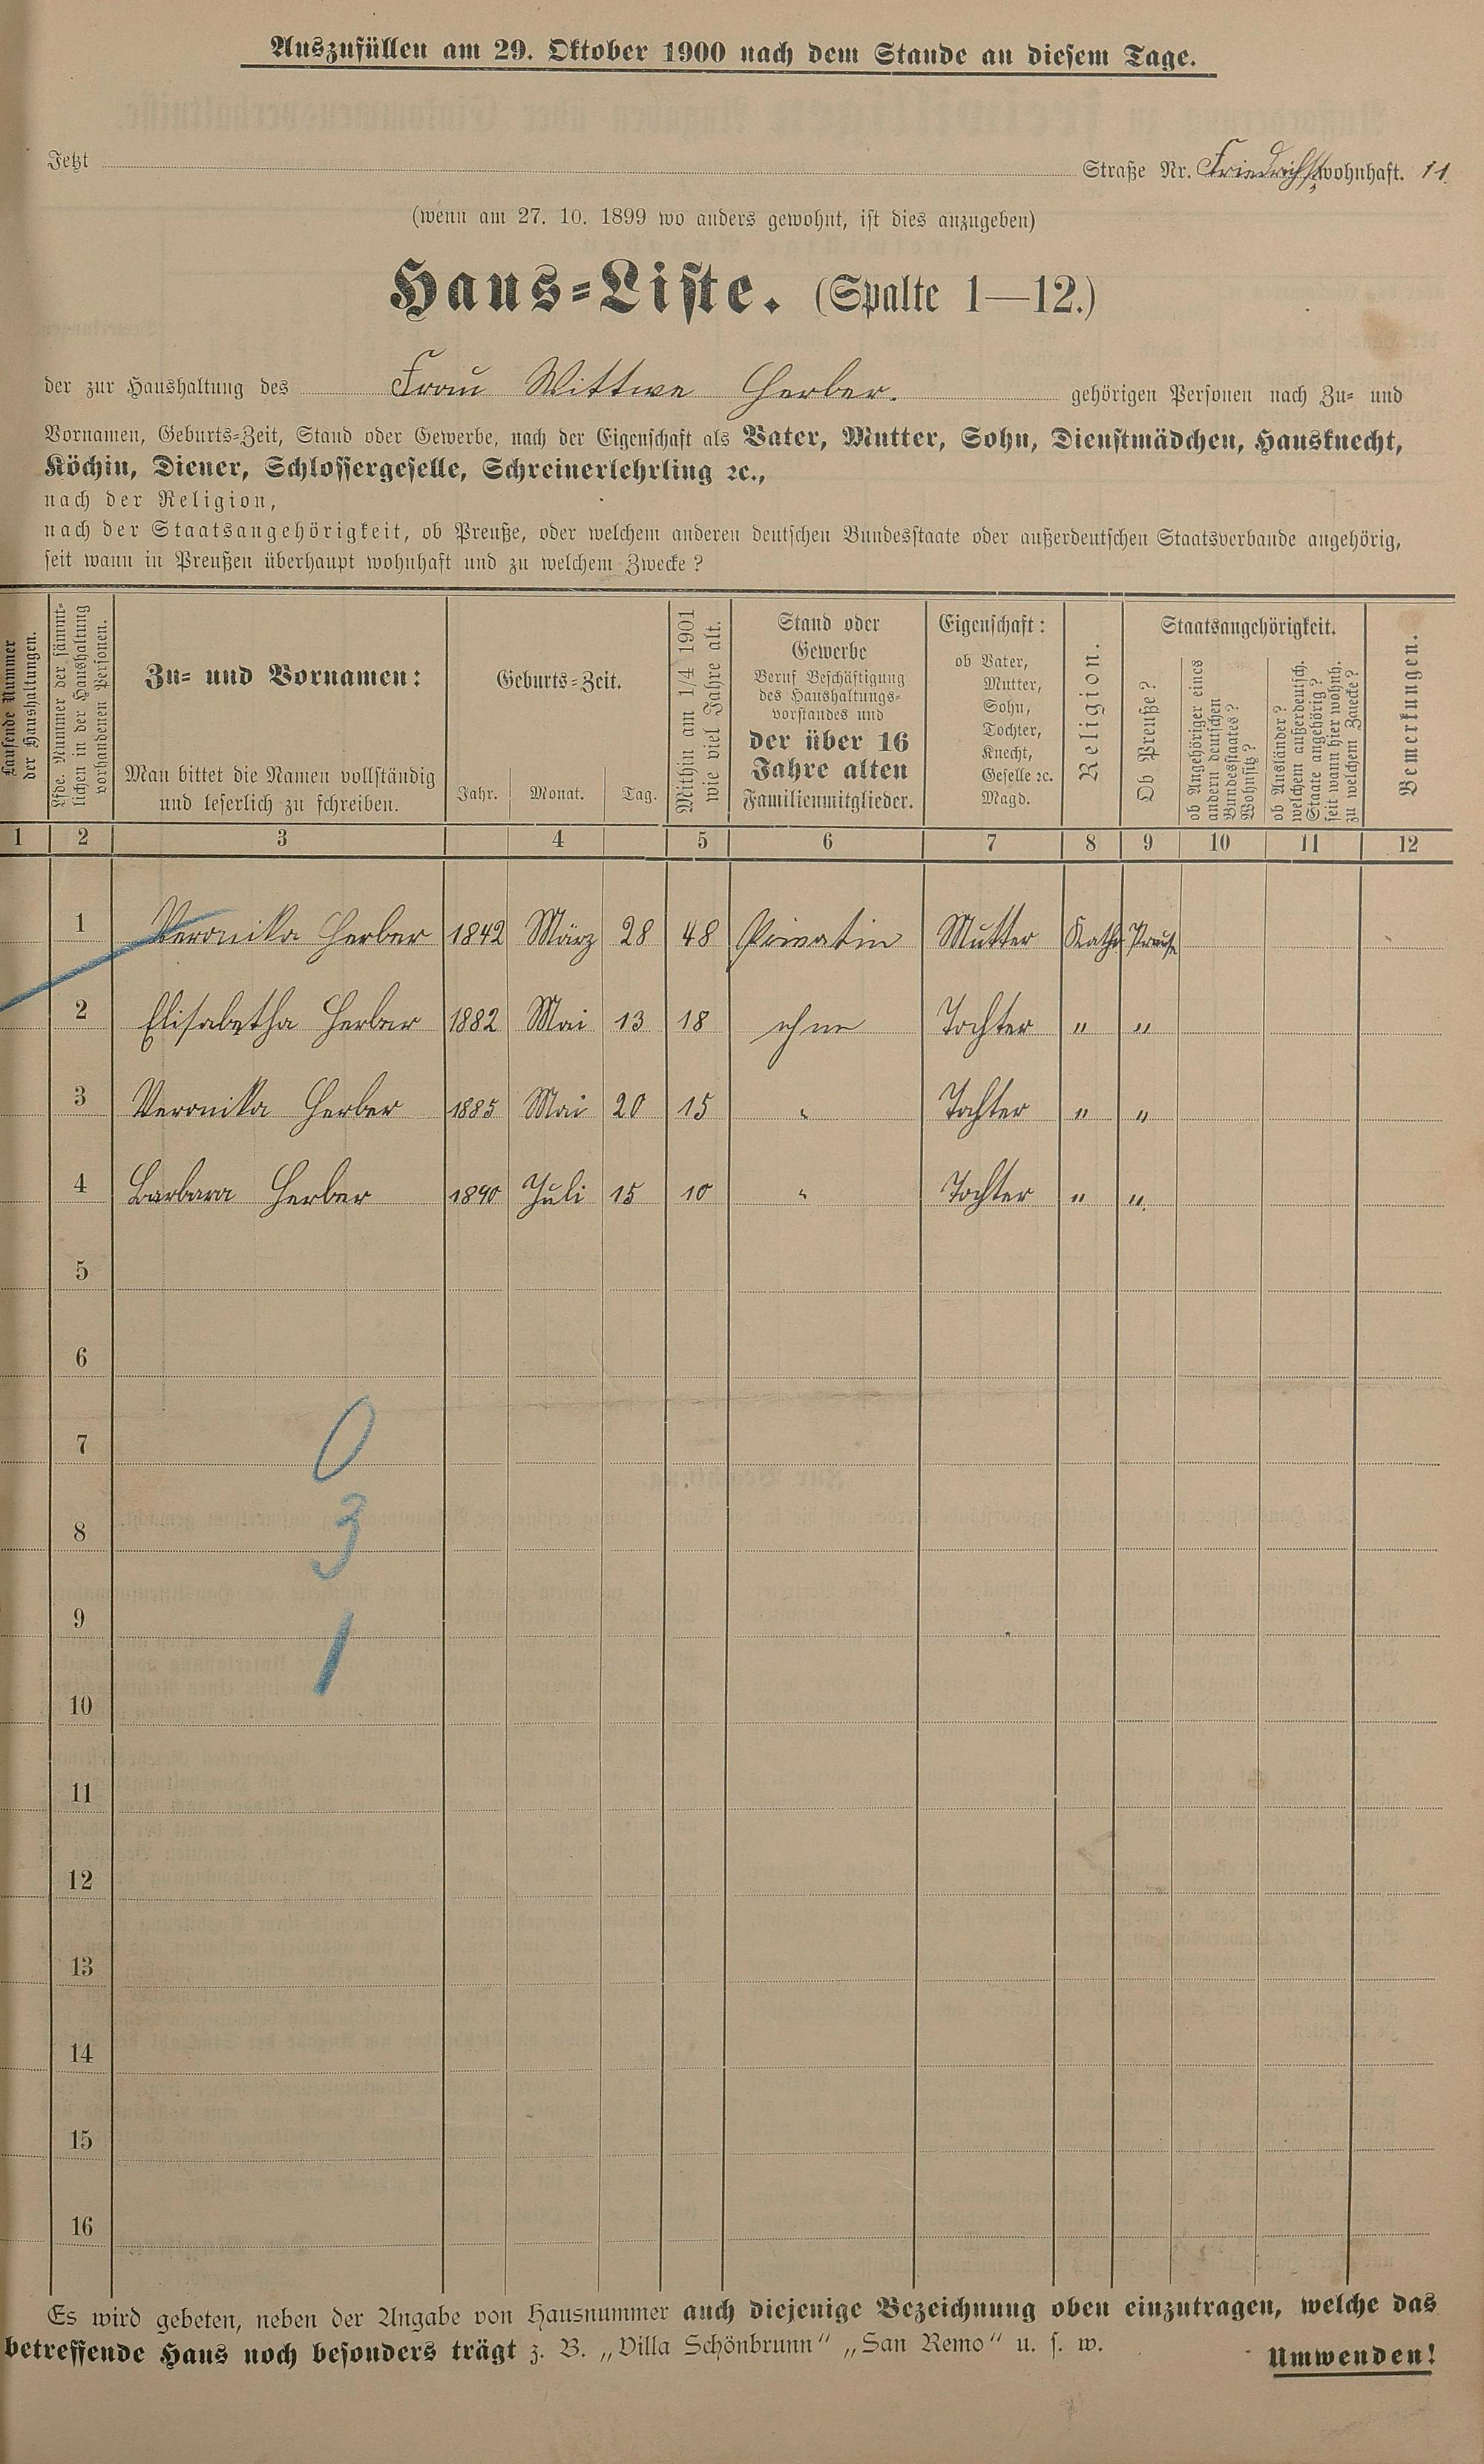 Auszufüllen am 29. Oktober 1900 nach dem Stande an diesem Tage.
Jetzt Straße Nr. Friedrichstr. wohnhaft. 11.
(wenn am 27. 10. 1899 wo anders gewohnt, ist dies anzugeben)
Haus-Liste. (Spalte 1—12.)
der zur Haushaltung des Frau Wittwe Herber. gehörigen Personen nach Zu- und
Vornamen, Geburts-Zeit, Stand oder Gewerbe, nach der Eigenschaft als Vater, Mutter, Sohn, Dienstmädchen, Hausknecht,
Köchin, Diener, Schlossergeselle, Schreinerlehrling ꝛc.,
nach der Religion,
nach der Staatsangehörigkeit, ob Preuße, oder welchem anderen deutschen Bundesstaate oder außerdeutschen Staatsverbande angehörig,
seit wann in Preußen überhaupt wohnhaft und zu welchem Zwecke?
Laufende Nummer
der Haushaltungen.
Lfde. Nummer der sämmt-
lichen in der Haushaltung
vorhandenen Personen.
Zu- und Vornamen:
Man bittet die Namen vollständig
und leserlich zu schreiben.
Geburts-Zeit.
Jahr. Monat. Tag.
Mithin am 1/4 1901
wie viel Jahre alt.
Stand oder
Gewerbe
Beruf Beschäftigung
des Haushaltungs-
vorstandes und
der über 16
Jahre alten
Familienmitglieder.
Eigenschaft:
ob Vater,
Mutter,
Sohn,
Tochter,
Knecht,
Geselle ꝛc.
Magd.
Religion.
Staatsangehörigkeit.
Ob Preuße?
ob Angehöriger eines
andern deutschen
Bundesstaates?
Wohnsitz?
ob Ausländer?
welchem außerdeutsch.
Staate angehörig?
seit wann hier wohnh.
zu welchem Zwecke?
Bemerkungen.
1 2 3 4 5 6 7 8 9 10 11 12
1 Veronika Herber 1842 März 28 48 Privatin Mutter Kath. Preuße
2 Elisabetha Herber 1882 Mai 13 18 ohne Tochter " "
3 Veronika Herber 1885 Mai 20 15 " Tochter " "
4 Barbara Herber 1890 Juli 15 10 " Tochter " "
5
6
7 0
8 3
9 1
10
11
12
13
14
15
16
Es wird gebeten, neben der Angabe von Hausnummer auch diejenige Bezeichnung oben einzutragen, welche das
betreffende Haus noch besonders trägt z. B. „Villa Schönbrunn“ „San Remo“ u. s. w.
Umwenden!